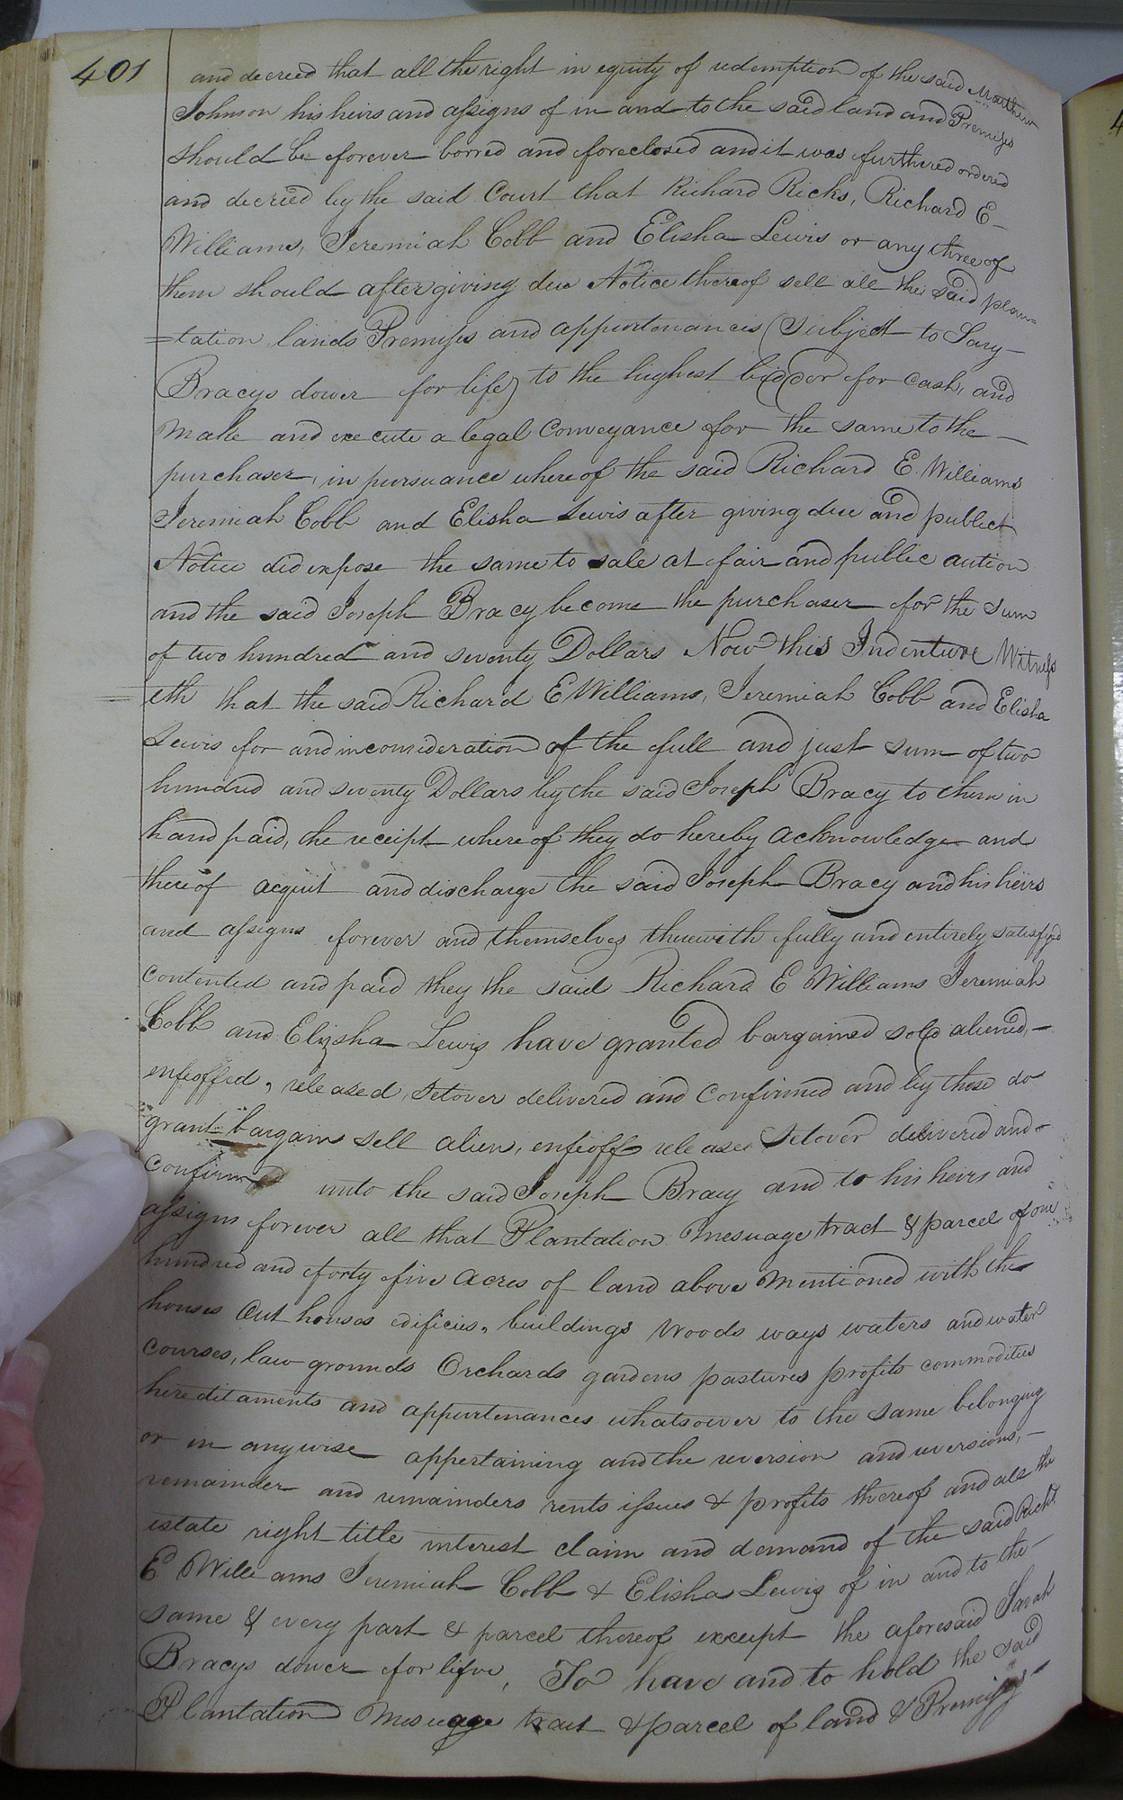 401
and decreed that all the right in equity of redemption of the said Matthew
Johnson his heirs and assigns of in and to the said land and Premises
should be forever borred and foreclosed and it was furthered ordered
and decried by the said Court that Richard Ricks, Richard E
Williams, Jeremiah Cobb and Elisha Lewis or any three of
them should after giving due Notice thereof sell all the said plan-
=tation lands Premises and appurtenances (Subject to Sary
Bracys dower for life) to the highest bidder for cash, and
Make and execute a legal Conveyance for the same to the
purchaser, in pursuance whereof the said Richard E Williams
Jeremiah Cobb and Elisha Lewis after giving due and publict
Notice did expose the same to sale at fair and public aution
and the said Joseph Bracy become the purchaser for the Sum
of two hundred and seventy Dollars Now this Indenture Witness
eth that the said Richard E Williams, Jeremiah Cobb and Elisha
Lewis for and in consideration of the full and just sum of two
hundred and seventy Dollars by the said Joseph Bracy to them in
hand paid, the receipt whereof they do hereby acknowledge and
thereof acquit and discharge the said Joseph Bracy and his heirs
and assigns forever and themselves therewith fully and entirely satisfyd
contented and paid they the said Richard E Williams Jeremiah
Cobb and Elisha Lewis have granted bargained sold aliened,
enfeoffed, released, Setover delivered and Confirmed and by these do
grant bargain sell alien, enfeoff release Setover delivered and
Confirm unto the said Joseph Bracy and to his heirs and
assigns forever all that Plantation Mesuage tract & parcel of one
hundred and forty five Acres of land above Mentioned with the
houses Out houses edificies, buildings Woods ways waters and water
Courses, law grounds Orchards gardens pastures profits commodities
hereditaments and appurtenances whatsoever to the same belonging
or in any wise appertaining and the reversion and reversions,
remainder and remainders rents issues & profits thereof and all the
estate right title interest claim and demand of the said Richd
E Williams Jeremiah Cobb & Elisha Lewis of in and to the
same & every part & parcel thereof except the aforesaid Sarah
Bracys dower for life, To have and to hold the said
Plantation Mesuage tract & parcel of land & Premises